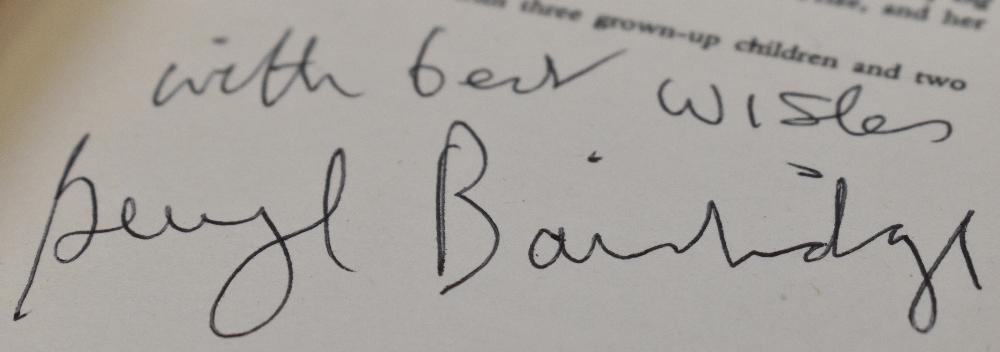 , and her
three grown-up children and two
with best wishes
Beryl Bainbridge